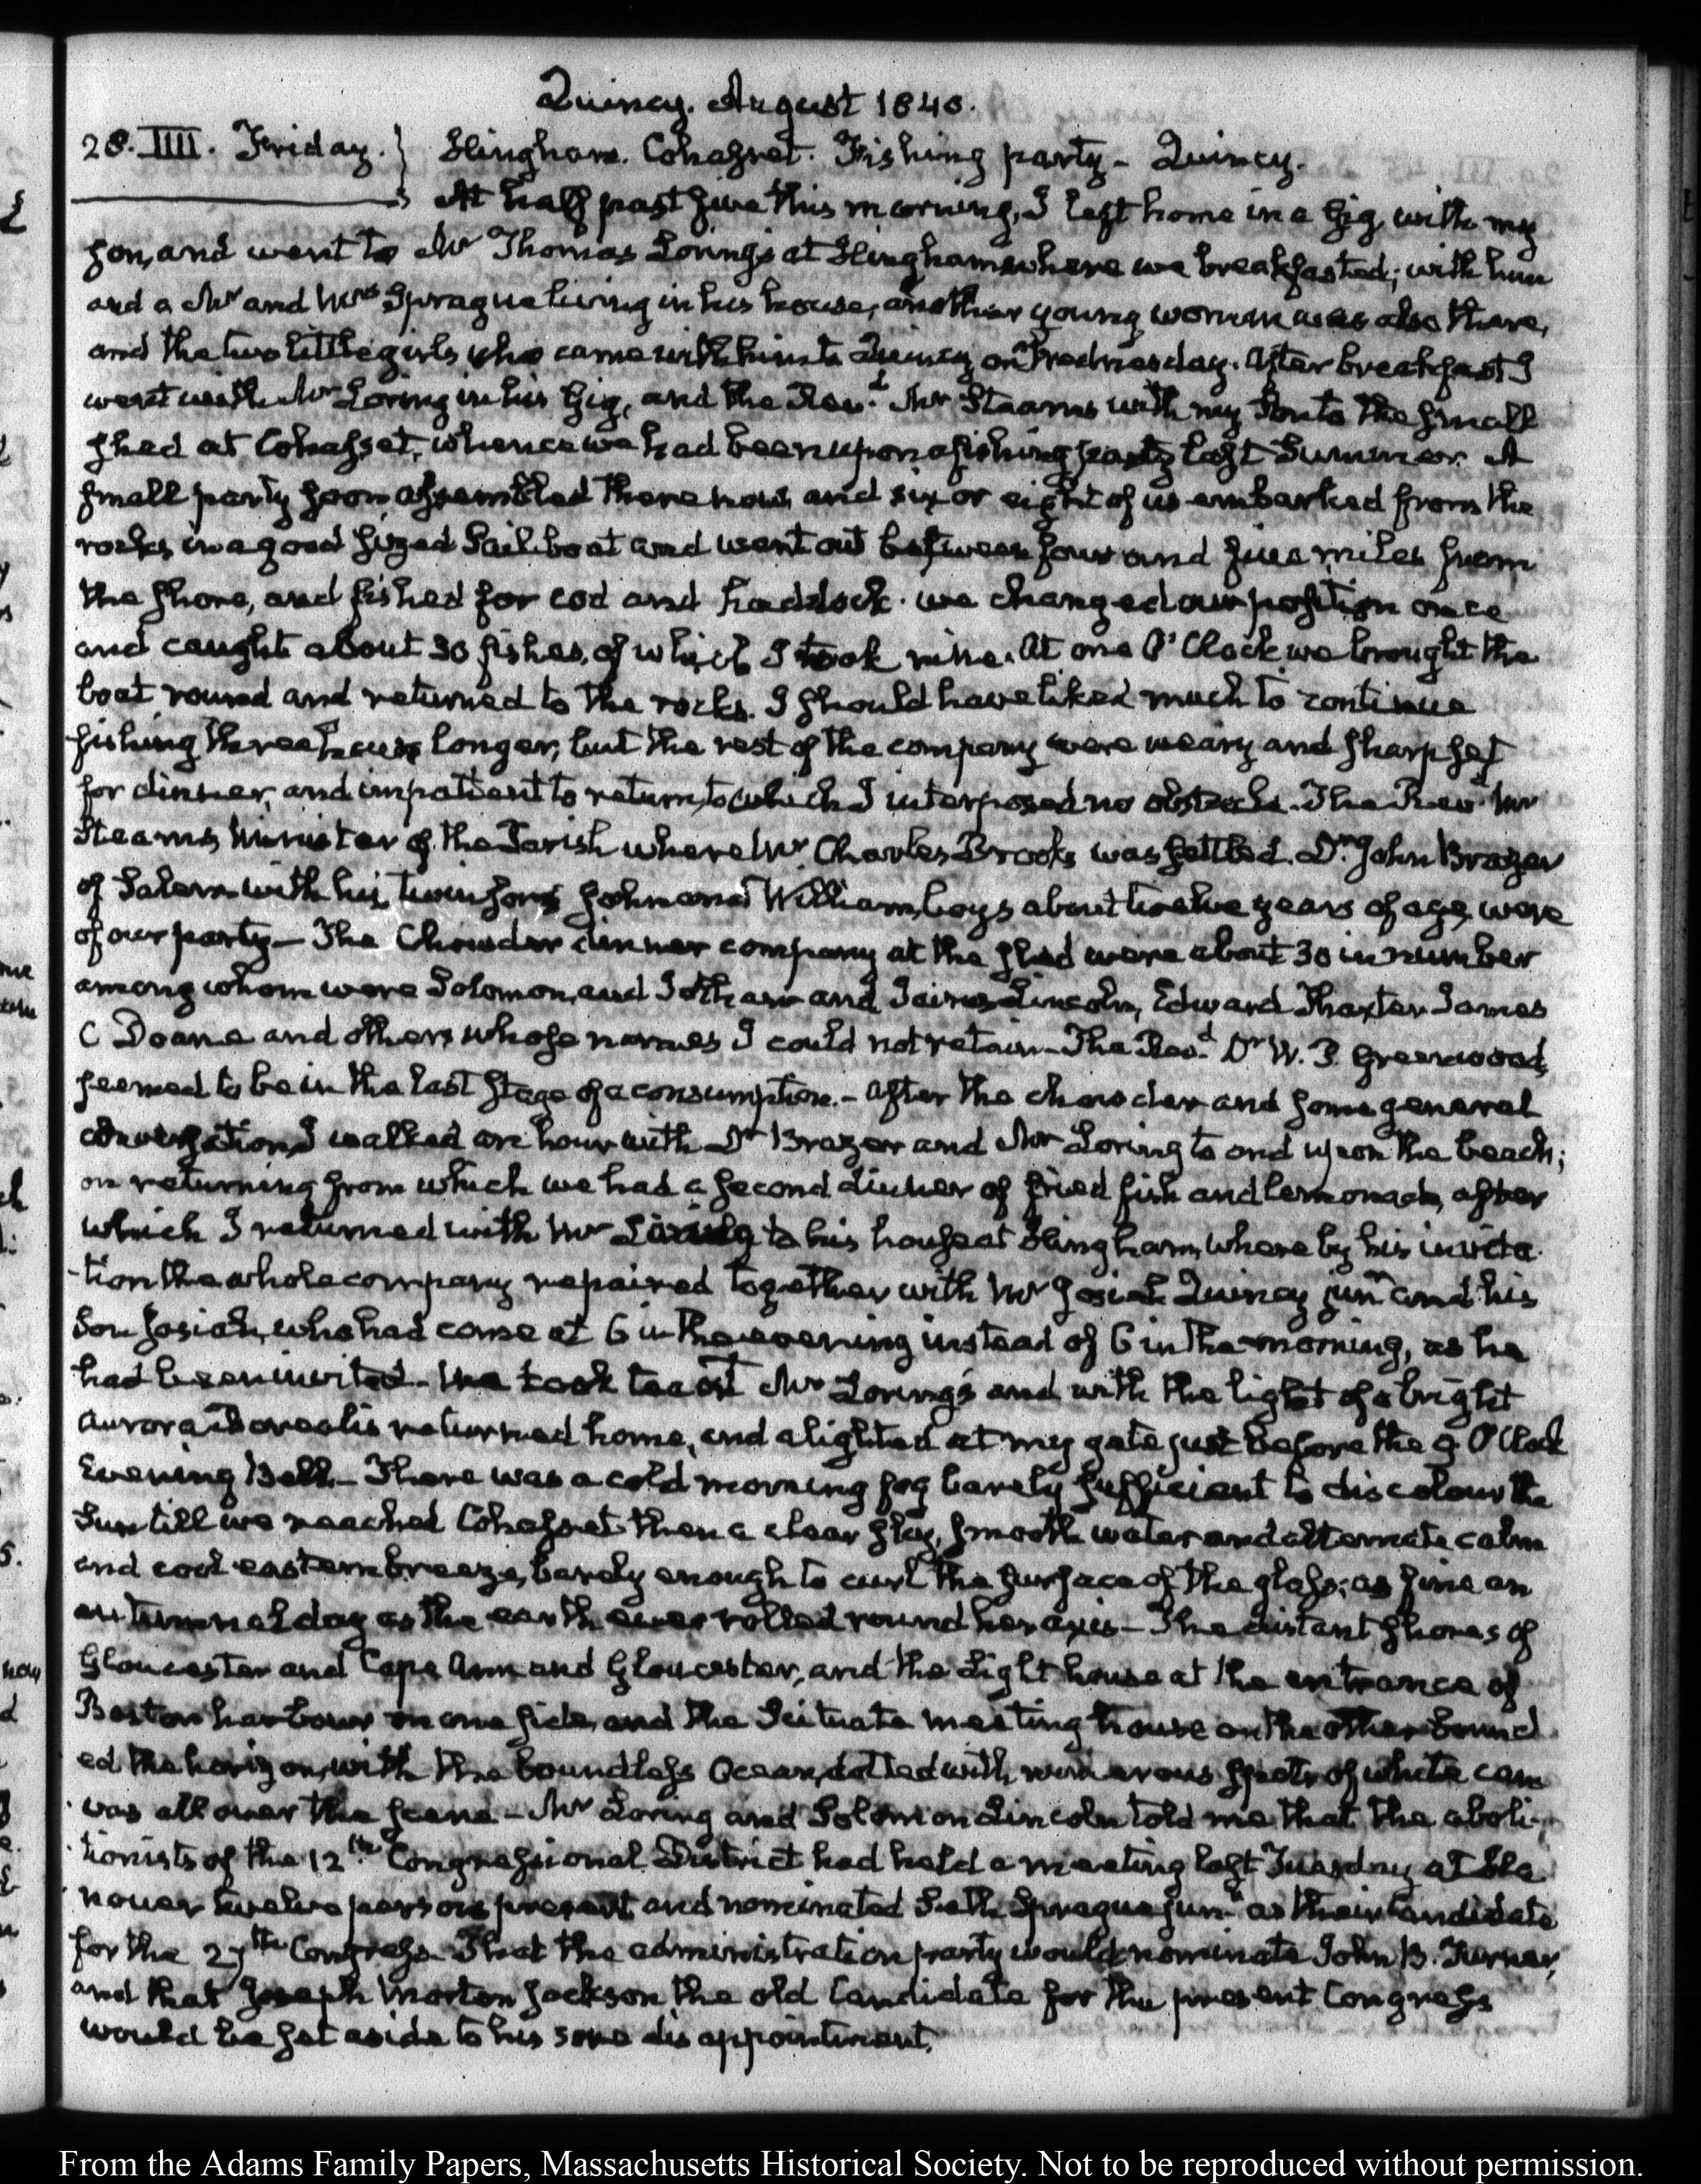 Quincy. August 1840.
28. IIII. Friday. } Hingham. Cohasset. Fishing party — Quincy.
At half past five this morning, I left home in a Gig, with my
son, and went to Mr Thomas Loring's at Hingham where we breakfasted; with him
and a Mr and Mrs Sprague living in his house, another young woman was also there,
and the two little girls who came with him to Quincy on Wednesday. After breakfast I
went with Mr Loring in his Gig, and the Revd. Mr Stearns with my Son to the small
shed at Cohasset, whence we had been upon a fishing party last Summer. A
small party soon assembled there now, and six or eight of us embarked from the
rocks in a good sized Sail boat and went out between four and five miles from
the shore, and fished for cod and haddock. we changed our position once
and caught about 30 fishes, of which I took nine. At one O'Clock we brought the
boat round and returned to the rocks. I should have liked much to continue
fishing three hours longer, but the rest of the company were weary and sharp set
for dinner, and impatient to return, to which I interposed no obstacle. The Revd. Mr
Stearns Minister of the Parish where Mr Charles Brooks was settled. Dr. John Brazer
of Salem with his twin sons John and William, boys about twelve years of age, were
of our party — The Chowder dinner company at the shed were about 30 in number
among whom were Solomon, and Jotham and Jairus Lincoln, Edward Thaxter James
C Doane and others whose names I could not retain — The Revd. Dr W. P. Greenwood,
seemed to be in the last stage of a consumption. — After the chowder and some general
conversation, I walked an hour with Dr Brazer and Mr Loring to and upon the beach;
on returning from which we had a second dinner of fried fish and lemonade, after
which I returned with Mr Loring to his house at Hingham, where by his invita-
-tion the whole company repaired together with Mr Josiah Quincy junr and his
Son Josiah, who had come at 6 in the evening instead of 6 in the morning, as he
had been invited — We took tea at Mr Loring's and with the light of a bright
Aurora Borealis returned home, and alighted at my gate just before the 9 O'Clock
Evening Bell — There was a cold morning fog barely sufficient to discolour the
Sun till we reached Cohasset then a clear sky, smooth water and alternate calm
and cool eastern breeze, barely enough to curl the surface of the glass; as fine an
autumnal day as the earth ever rolled round her axis — The distant shores of
Gloucester and Cape Ann and Gloucester, and the Light house at the entrance of
Boston harbour on one side, and the Scituate meeting house on the other bound
ed the horizon, with the boundless Ocean, dotted with numerous spots of white can
vas all over the scene — Mr Loring and Solomon Lincoln told me that the aboli-
-tionists of the 12th Congressional District had held a meeting last Tuesday at Ha
nover twelve persons present and nominated Seth Sprague junr as their Candidate
for the 27th Congress. That the administration party would nominate John B. Turner,
and that Joseph Morton Jackson the old Candidate for the present Congress
would be set aside to his sore disappointment.
From the Adams Family Papers, Massachusetts Historical Society. Not to be reproduced without permission.